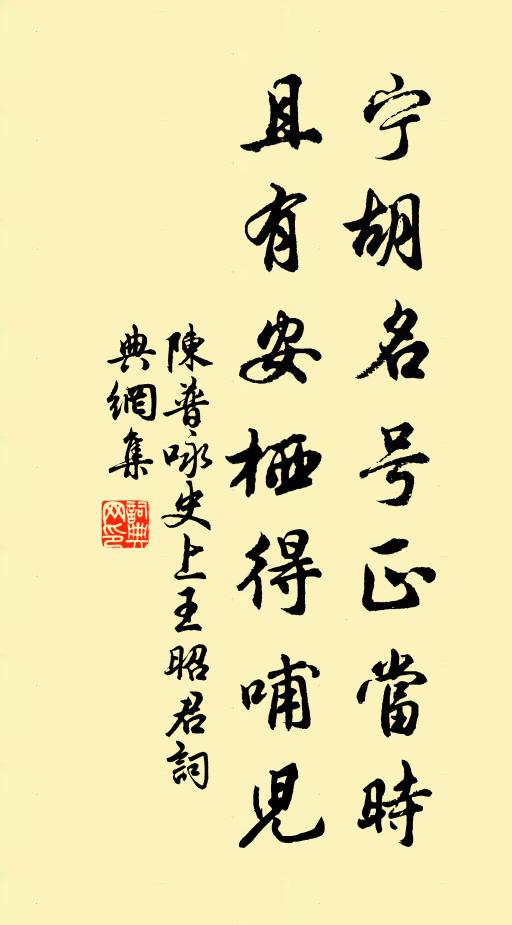 宁胡名号正當時
且有安栖得哺児
陳普咏史上王昭君詞
典網集
詞典
网印